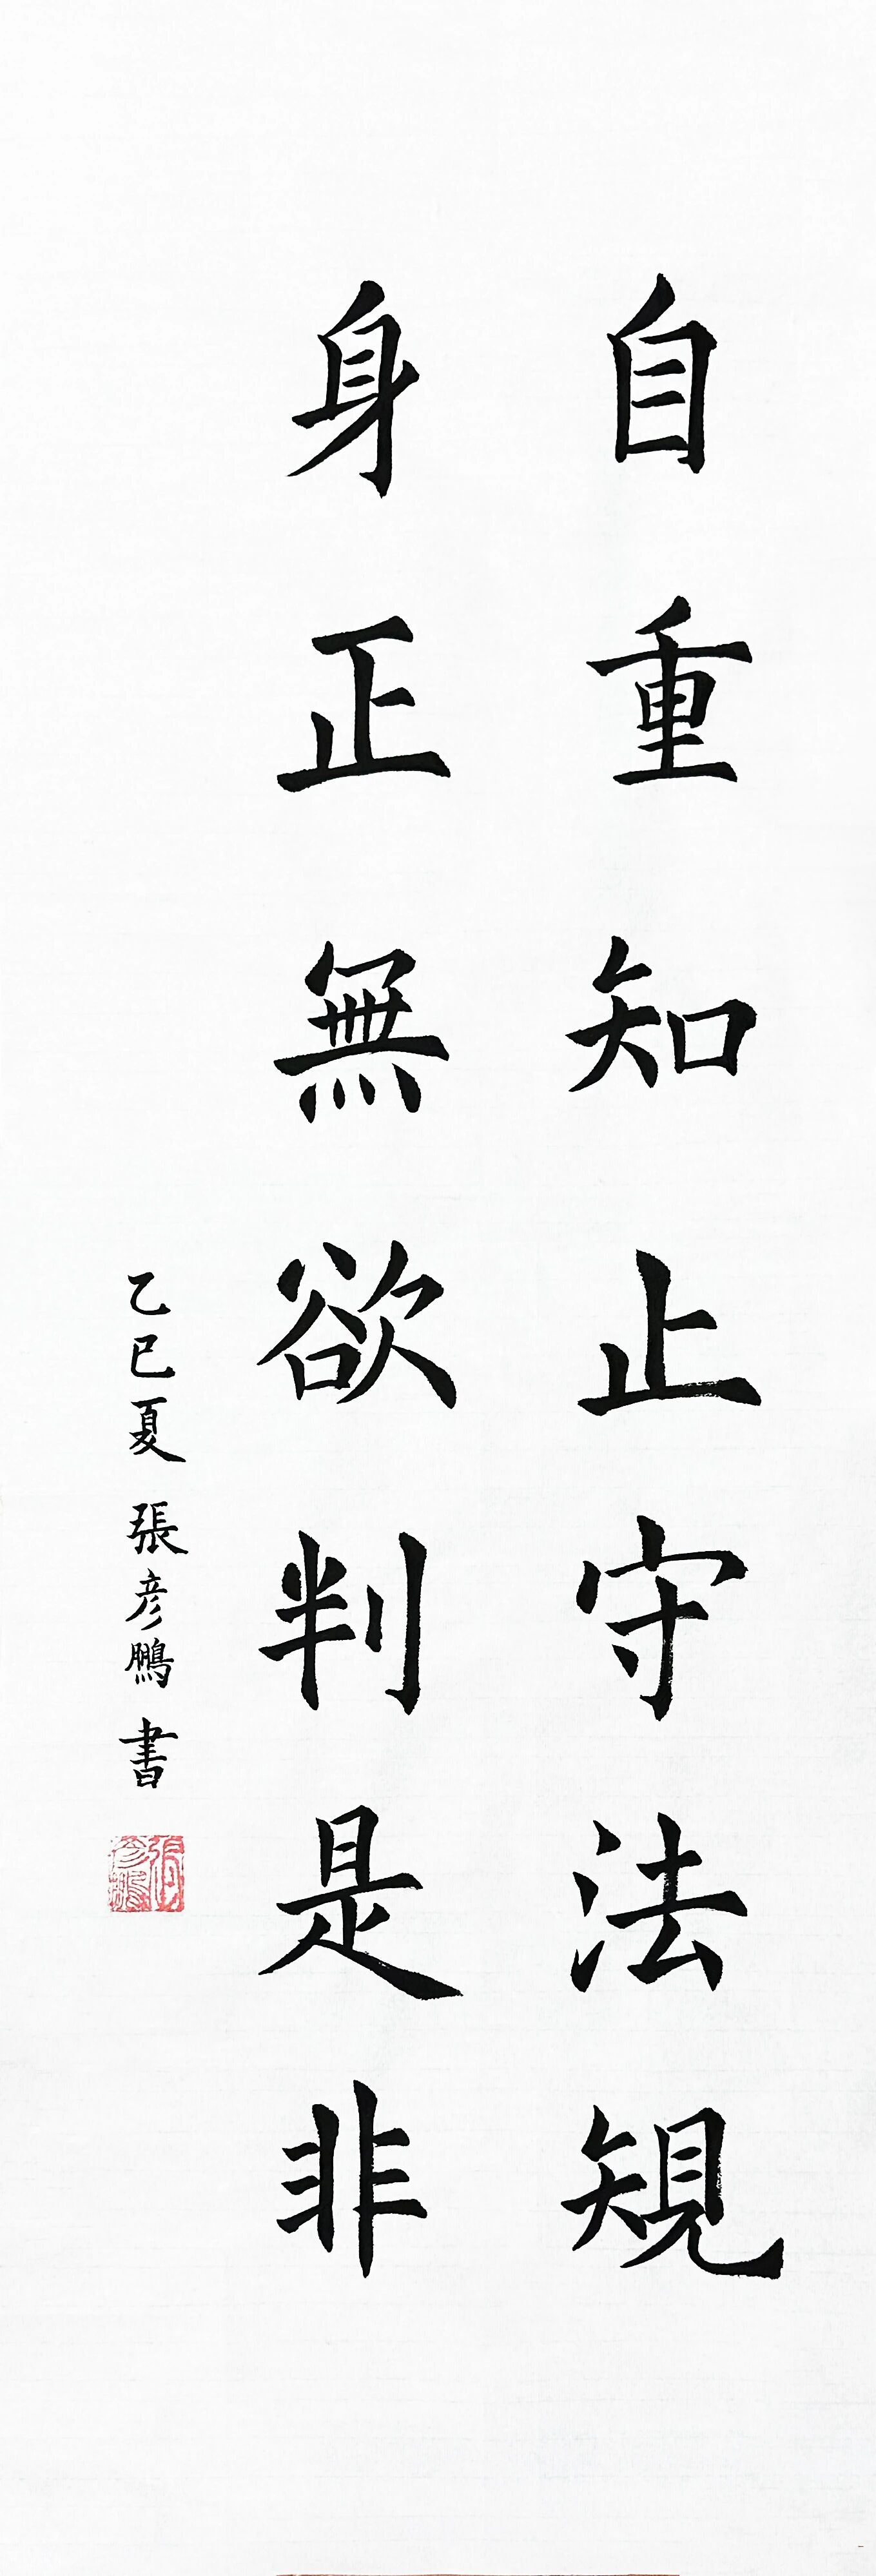 自重知止守法規
身正無欲判是非
乙巳夏 張彦鵬 書
張彦鵬